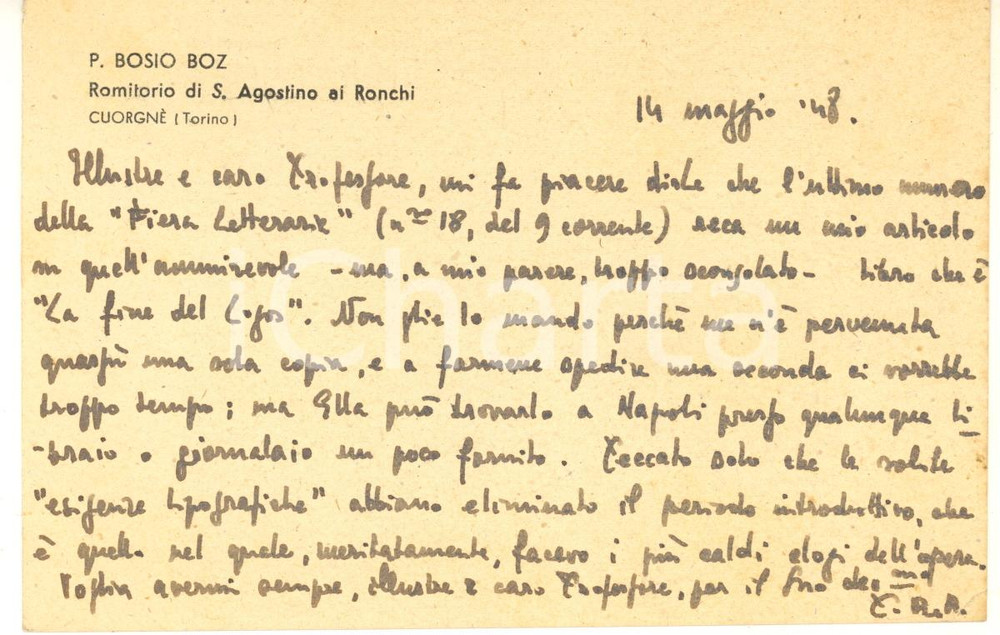 P. BOSIO BOZ
Romitorio di S. Agostino ai Ronchi
CUORGNÈ (Torino)
14 maggio '48.
Illustre e caro Professore, mi fa piacere dirLe che l'ultimo numero
della "Fiera Letteraria" (nro 18, del 9 corrente) reca un mio articolo
su quell'ammirevole - ma, a mio parere, troppo sconsolato - libro che è
"La fine del Logos". Non glie lo mando perchè me n'è pervenuta
quassù una sola copia, e a farmene spedire una seconda ci vorrebbe
troppo tempo; ma Ella può trovarlo a Napoli presso qualunque li
-braio o giornalaio un poco fornito. Peccato solo che le solite
"esigenze tipografiche" abbiano eliminato il periodo introduttivo, che
è quello nel quale, meritatamente, facevo i più caldi elogi dell'opera.
Voglia avermi sempre, illustre e caro Professore, per il Suo
iCharta